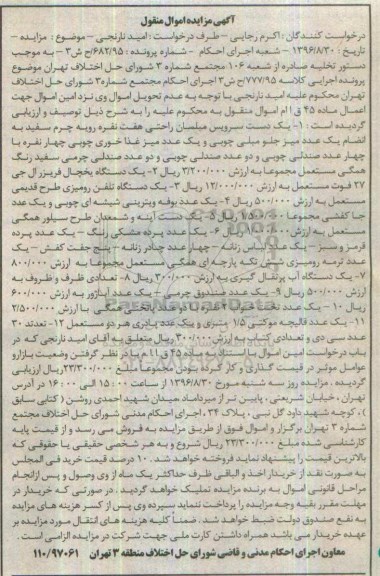 آگهی مزایده اموال منقول
درخواست کنندگان : اکرم رجایی – طرف درخواست : امید نارنجی – موضوع : مزایده –
تاریخ : ۱۳۹۶/۸/۳۰ – شعبه اجرای احکام – شماره پرونده : ۶۸۲/۹۵/ج ش۳ – به موجب
دستور تخلیه صادره از شعبه ۱۰۶ مجتمع شماره ۳ شورای حل اختلاف تهران موضوع
پرونده اجرایی کلاسه ۷۷۷/۹۵/ج ش۳ اجرای احکام مجتمع شماره۳ شورای حل اختلاف
تهران محکوم علیه امید نارنجی با توجه به عدم تحویل اموال وی نزد امین اموال جهت
اعمال ماده ۴۵ ق ا ام اموال منقول به محکوم علیه را به شرح ذیل توصیف و ارزیابی
گردیده است : ۱- یک دست سرویس مبلمان راحتی هفت نفره رویه چرم سفید به
انضام یک عدد میز جلو مبلی چوبی و یک عدد میز غذا خوری چوبی چهار نفره با
چهار عدد صندلی چوبی و دو عدد صندلی چوبی و دو عدد صندلی چرمی سفید رنگ
همگی مستعمل مجموعا به ارزش ۳/۲۰۰/۰۰۰ ریال ۲- یک دستگاه یخچال فریزر ال جی
۲۷ فوت مستعمل به ارزش ۱۲/۰۰۰/۰۰۰ ریال ۳- یک دستگاه تلفن رومیزی طرح قدیمی
مستعمل به ارزش ۵۰۰/۰۰۰ ریال ۴- یک عدد بوفه ویترینی شیشه ای چوبی و یک عدد
جا کفشی مجموعا به ارزش ۱/۵۰۰/۰۰۰ ریال ۵- یک دست آینه و شمعدان طرح سیلور همگی
مستعمل به ارزش ۸۰۰/۰۰۰ ریال ۶- یک عدد پرده مشکی رنگ – یک عدد پرده
قرمز و سبز – یک عدد لباس زنانه – چهار عدد چادر زنانه – پنج جفت کفش – یک
عدد ترمه رومیزی شش تکه پارچه ای همگی مستعمل مجموعا به ارزش ۸۰۰/۰۰۰
۷- یک دستگاه آب پرتقال گیری به ارزش ۳۰۰/۰۰۰ ریال ۸- تعدادی ظرف و ظروف به
ارزش ۵۰۰/۰۰۰ ریال ۹- یک عدد صندوق چرمی – یک عدد آباژور به ارزش ۶۰۰/۰۰۰
ریال ۱۰- یک عدد تخت خواب ۲ نفره با دو عدد پاتختی همگی به ارزش ۲/۵۰۰/۰۰۰
۱۱- یک عدد قالیچه موکتی ۱/۵ متری و یک عدد پادری هر دو مستعمل ۱۲- تعداد ۳۰
عدد سی دی و تعدادی کتاب به ارزش ۳۰۰/۰۰۰ ریال متعلق به آقای امید نارنجی که در
باب درخواست امین اموال با استناد به ماده ۴۵ ق ا ا م با در نظر گرفتن وضعیت بازار و
عوامل موثر در قیمت گذاری و کار کرده بودن مجموعا مبلغ ۲۳/۳۰۰/۰۰۰ ریال ارزیابی
گردیده . مزایده روز سه شنبه مورخ ۱۳۹۶/۸/۳۰ از ساعت ۱۵:۰۰ الی ۱۶:۰۰ در آدرس
تهران ، خیابان شریعتی ، پایین تر از میرداماد میدان شهید احمدی روشن ( کتابی سابق
) ، کوچه شهید داود گل نبی ، پلاک ۳۴ ، اجرای احکام مدنی شورای حل اختلاف مجتمع
شماره ۳ تهران برگزار و اموال فوق از طریق مزایده به فروش می رسد و از قیمت پایه
کارشناسی شده مبلغ ۲۳/۳۰۰/۰۰۰ ریال شروع و به هر شخصی حقیقی یا حقوقی که
بالاترین قیمت را پیشنهاد نماید فروخته خواهد شد . ۱۰ درصد قیمت خرید فی المجلس
به صورت نقد از خریدار اخذ و الباقی ظرف حداکثر یک ماه از وی وصول و پس از انجام
مراحل قانونی اموال به برنده مزایده تملیک خواهد گردید . در صورتی که خریدار در
مهلت مقرر بقیه وجه مزایده را پرداخت ننماید سپرده وی پس از کسر هزینه های مزایده
به نفع صندوق دولت ضبط خواهد شد . ضمناً کلیه هزینه های انتقال مورد مزایده بر
عهده خریدار می باشد همراه داشتن کارت ملی جهت شرکت در مزایده الزامی است .
معاون اجرای احکام مدنی و قاضی شورای حل اختلاف منطقه ۳ تهران ۱۱۰/۹۷۰۶۱